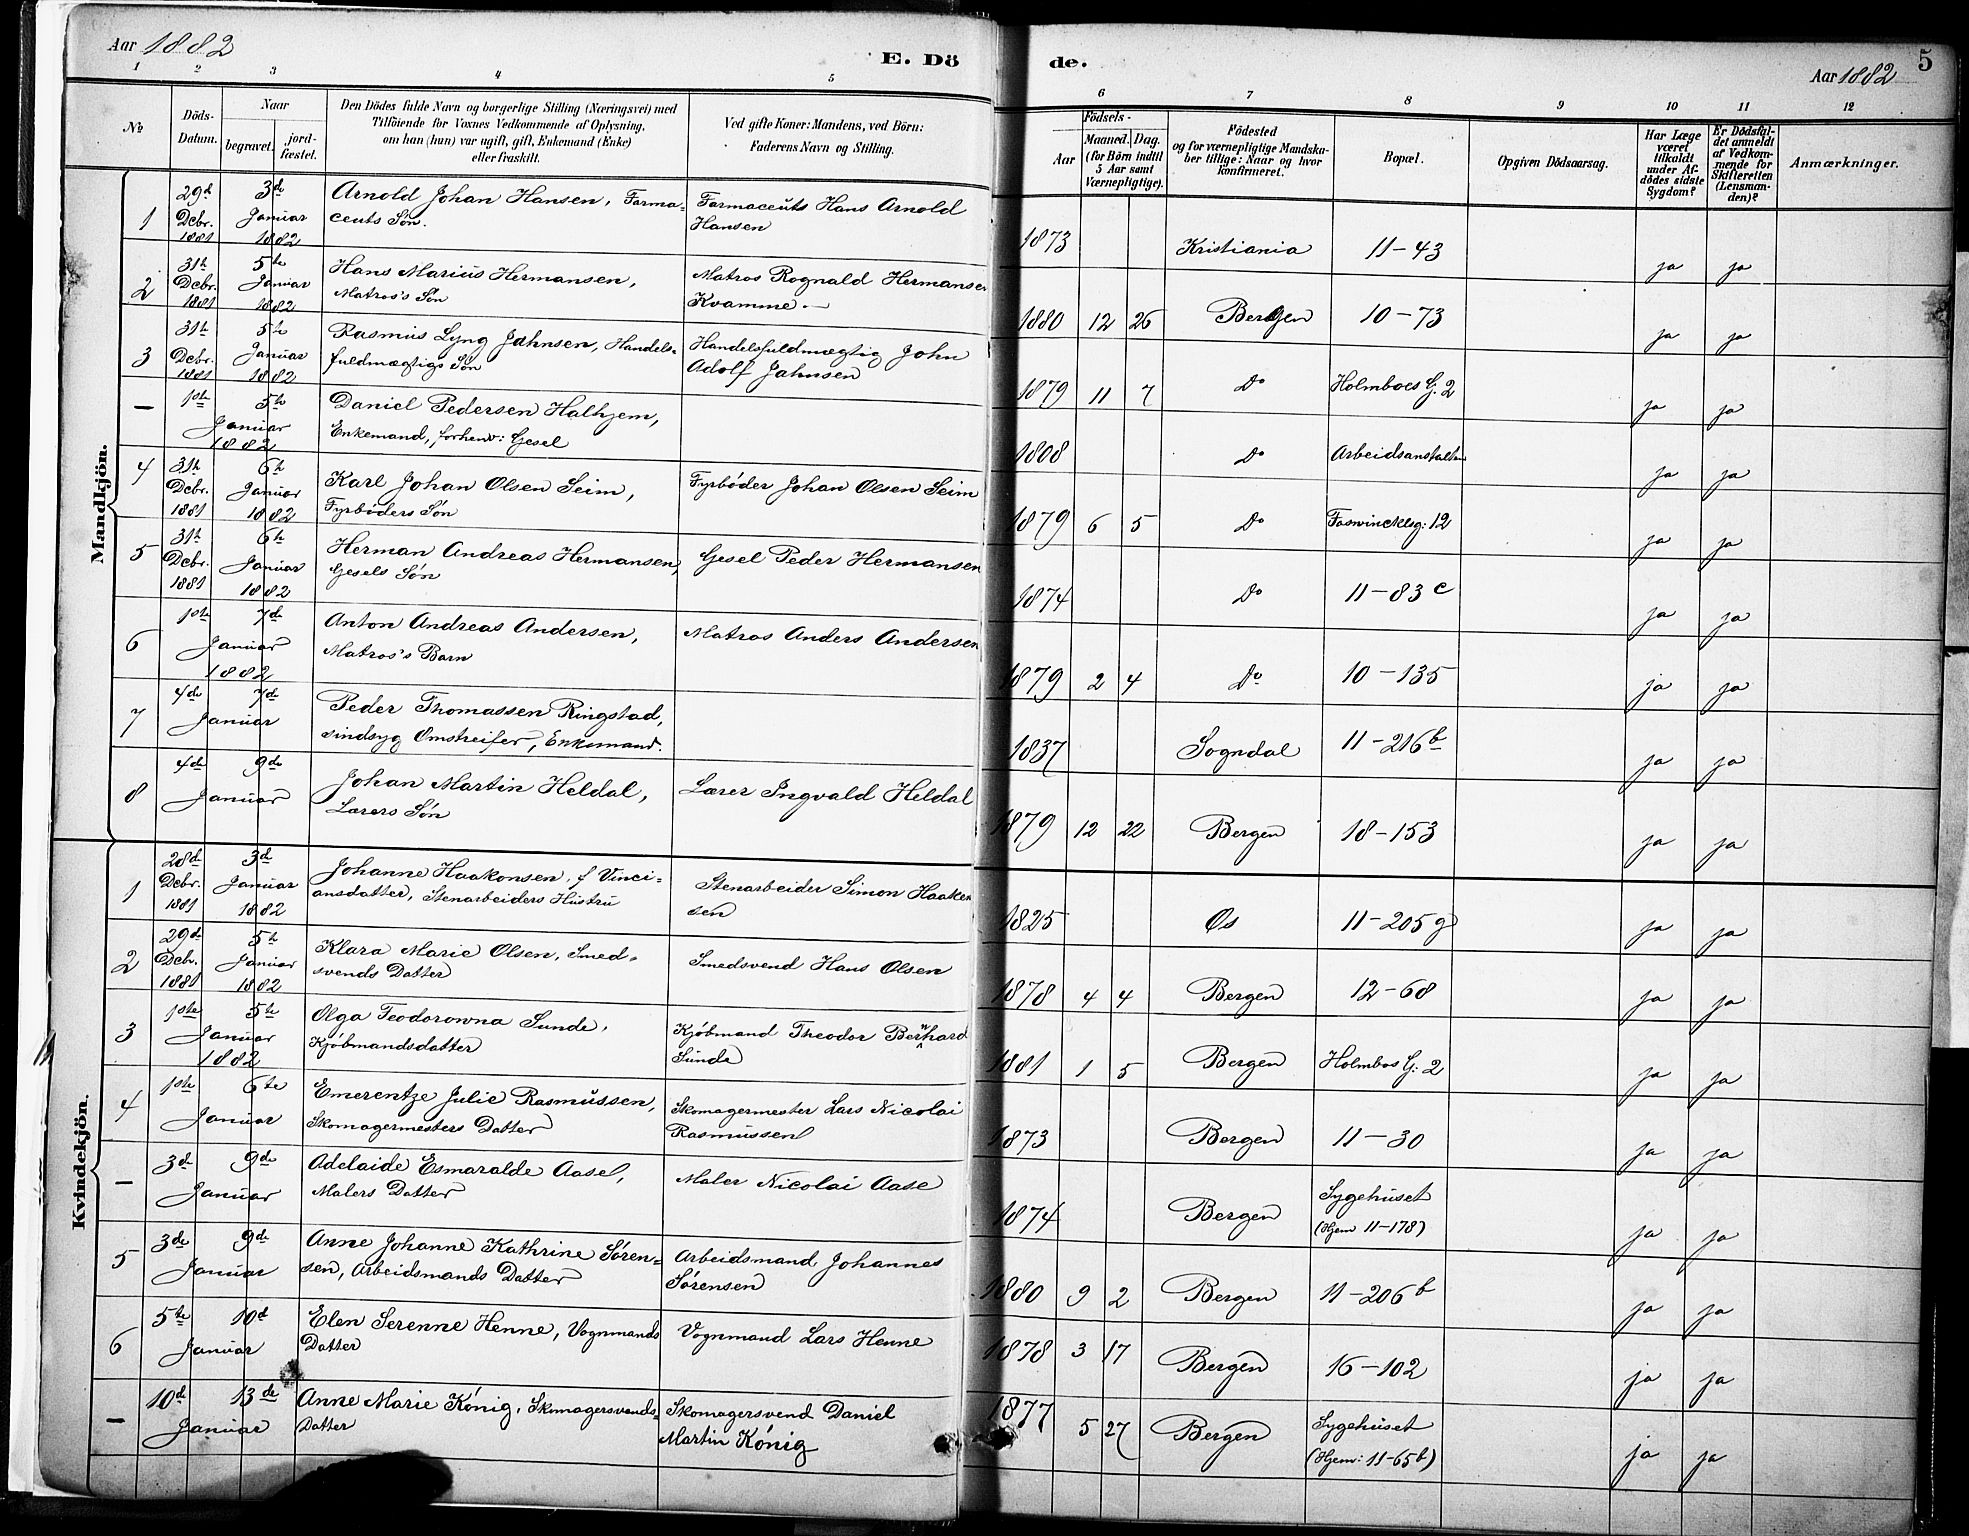 Aar 1882
E. Dö
de.
Aar 1882
5
1 2 3 4 5 6 7 8 9 10 11 12
No
Döds-
Datum.
Naar
begravet.
jord-
fæstet.
Den Dödes fulde Navn og borgerlige Stilling (Næringsvei) med
Tilföiende for Voxnes Vedkommende af Oplysning,
om han (hun) var ugift, gift, Enkemand (Enke)
eller fraskilt.
Ved gifte Koner: Mandens, ved Börn:
Faderens Navn og Stilling.
Födsels-
Aar
Maaned. Dag.
(for Börn indtil
5 Aar samt
Værnepligtige).
Födested
og for værnepligtige Mandska-
ber tillige: Naar og hvor
konfirmeret.
Bopæl.
Opgiven Dödsaarsag.
Har Læge
været
tilkaldt
under Af-
dödes sidste
Sygdom?
Er Dödsfal-
det anmeldt
af Vedkom-
mende for
Skifteretten
(Lensman-
den)?
Anmærkninger.
Mandkjön.
1 29d Decbr. 1881 3d Januar 1882 Arnold Johan Hansen, Farma- Farmaceuts Hans Arnold 1873 Kristiania 11-43 ja ja
ceuts Søn. Hansen
2 31te Decbr. 1881 5te Januar 1882 Hans Marius Hermansen, Matros Rognald Hermansen 1880 12 26 Bergen 10-73 ja ja
Matros's Søn Kvamme.
3 31te Decbr. 1881 5te Januar 1882 Rasmus Lyng Jahnsen, Handels- Handelsfuldmægtig John 1879 11 7 Do Holmboes G. 2 ja ja
fuldmægtigs Søn Adolf Jahnsen
— 1ste 5te Januar 1882 Daniel Pedersen Halhjem, 1808 Do Arbeidsanstalten ja ja
Enkemand, forhenv: Gesel
4 31te Decbr. 1881 6te Januar 1882 Karl Johan Olsen Seim, Fyrbøder Johan Olsen Seim 1879 6 5 Do Foswincklsg: 12 ja ja
Fyrbøders Søn
5 31te Decbr. 1881 6te Januar 1882 Herman Andreas Hermansen, Gesel Peder Hermansen 1874 Do 11-83 c ja ja
Gesels Søn
6 1ste 7de Januar 1882 Anton Andreas Andersen, Matros Anders Andersen 1879 2 4 Do 10-135 ja ja
Matros's Barn
7 4de 7de Januar Peder Thomassen Ringstad, 1837 Sogndal 11-216 b ja ja
sindsyg Omstreifer, Enkemand.
8 4de 9de Januar Johan Martin Heldal, Lærer Ingvald Heldal 1879 12 22 Bergen 18-153 ja ja
Lærers Søn
Kvindekjön.
1 28d Decbr. 1881 3d Januar 1882 Johanne Haakonsen, f Vinci- Stenarbeider Simon Haakon 1825 Os 11-205 g ja ja
ansdatter, Stenarbeiders Hustru sen
2 29de Decbr. 1881 5te Januar 1882 Klara Marie Olsen, Smed- Smedsvend Hans Olsen 1878 4 4 Bergen 12-68 ja ja
svends Datter
3 1ste 5te Januar 1882 Olga Teodorowna Sunde, Kjøbmand Theodor Bernhard 1881 1 5 Bergen Holmbos G: 2 ja ja
Kjøbmandsdatter Sunde
4 1ste 6te Januar Emerentze Julie Rasmussen, Skomagermester Lars Nicolai 1873 Bergen 11-30 ja ja
Skomagermesters Datter Rasmussen
— 3de 9de Januar Adelaide Esmaralde Aase, Maler Nicolai Aase 1874 Bergen Sygehuset ja ja
Malers Datter (Hjem 11-178)
5 3de 9de Januar Anne Johanne Kathrine Søren- Arbeidsmand Johannes 1880 9 2 Bergen 11-206 b ja ja
sen, Arbeidsmands Datter Sørensen
6 5te 10d Januar Elen Serenne Henne, Vognmands Vognmand Lars Henne 1878 3 17 Bergen 16-102 ja ja
Datter
— 10de 13de Januar Anne Marie König, Skomagersvends- Skomagersvend Daniel 1877 5 27 Bergen Sygehuset ja ja
Datter Martin König (Hjem: 11-65b)